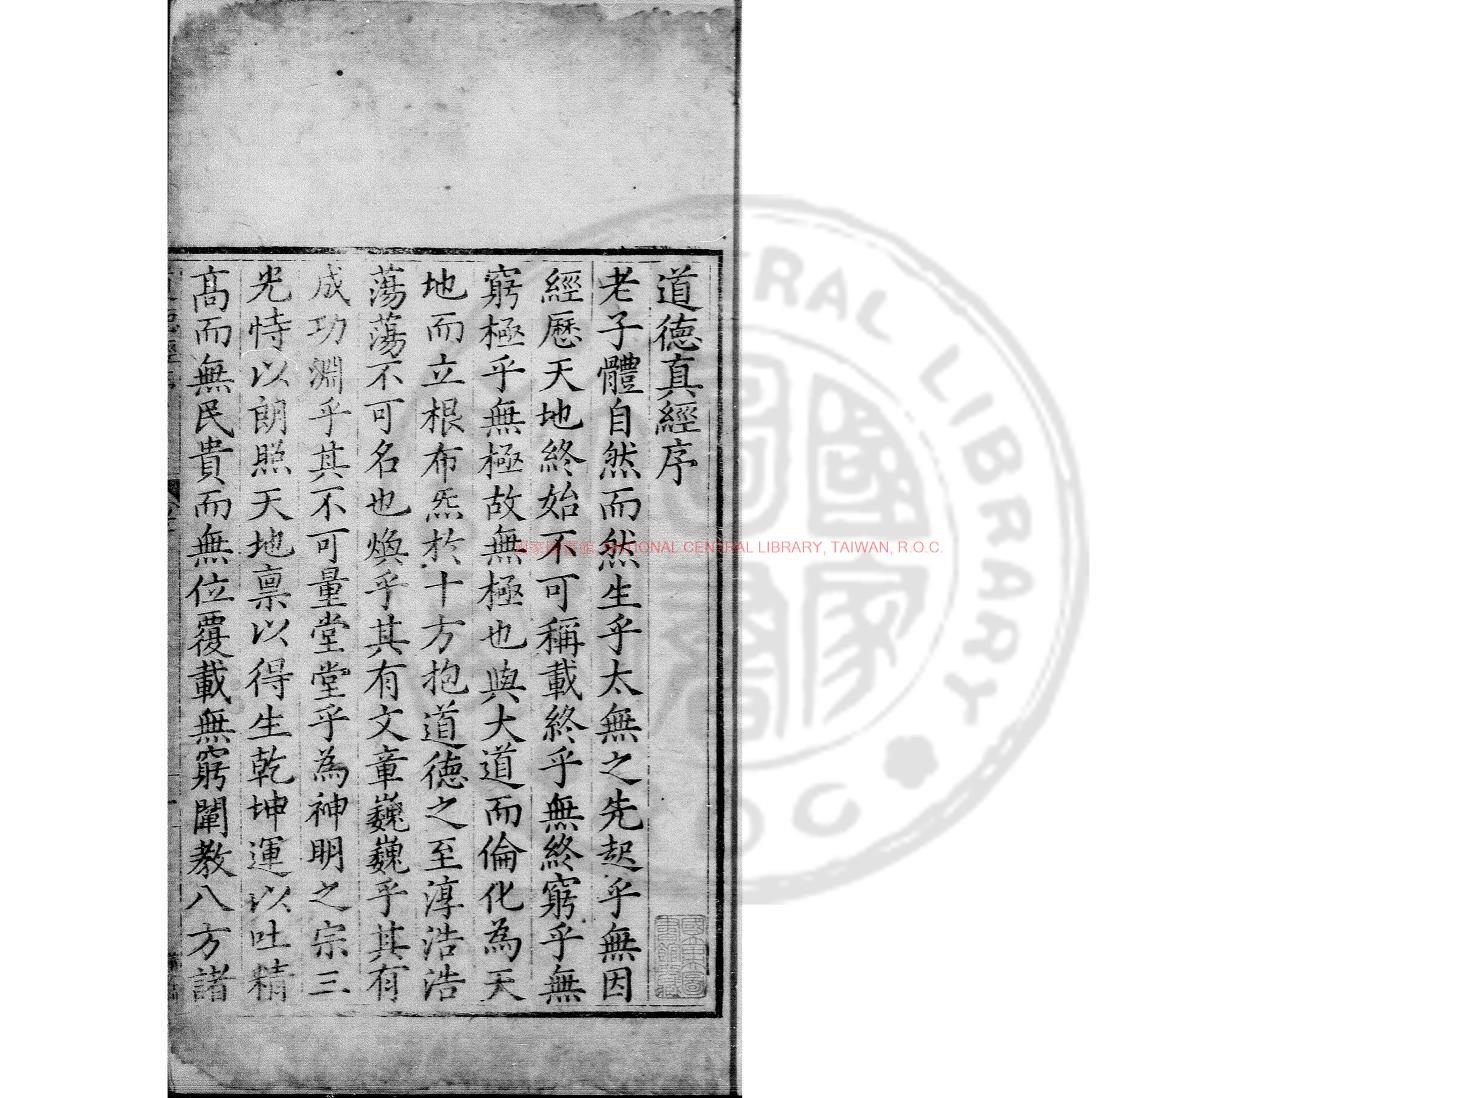 道德真經序
老子體自然而然生乎太無之先起乎無因
經歷天地終始不可稱載終乎無終窮乎無
窮極乎無極故無極也與大道而倫化為天
地而立根布炁於十方抱道德之至淳浩浩
蕩蕩不可名也煥乎其有文章巍巍乎其有
成功淵乎其不可量堂堂乎為神明之宗三
光恃以朗照天地禀以得生乾坤運以吐精
高而無民貴而無位覆載無窮闡教八方諸
國家圖書館 NATIONAL CENTRAL LIBRARY, TAIWAN, R.O.C.